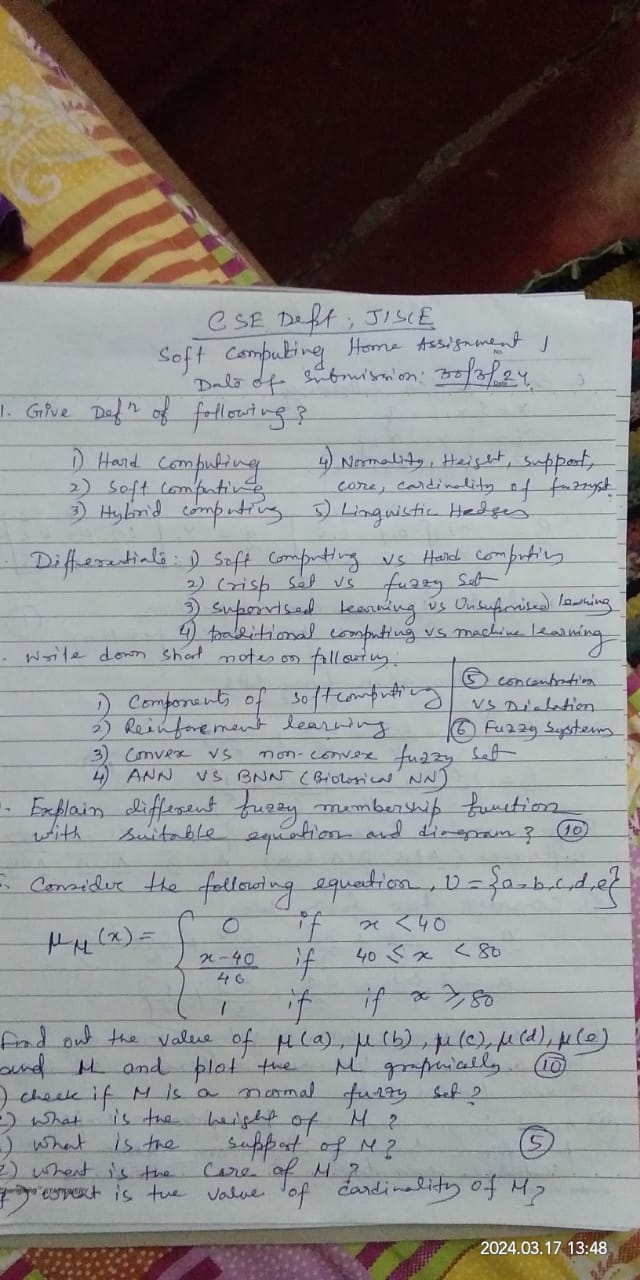 CSE Deptt, JISCE
Soft Computing Home Assignment 1
Date of Submission: 30/3/24
1. Give Defⁿ of following?
1) Hard Computing
2) Soft Computing
3) Hybrid computing
4) Normality, Height, support,
core, cardinality of fuzzyst.
5) Linguistic Hedges
Differentiate: 1) Soft Computing vs Hard computing
2) Crisp Set vs fuzzy Set
3) Supervised learning vs Unsupervised learning
4) traditional computing vs machine learning
Write down short notes on following:
1) Components of softcomputing
2) Reinforement learning
3) Convex vs non-convex fuzzy set
4) ANN VS BNN (Biological NN)
⑤ concentration
VS Dialation
⑥ Fuzzy Systems
Explain different fuzzy membership function
with suitable equation and diagram? ⑩
Consider the following equation, U = {a, b, c, d, e}
μM(x) = 0 if x < 40
x-40/40 if 40 ≤ x < 80
1 if if x ≥ 80
Find out the value of μ(a), μ(b), μ(c), μ(d), μ(e)
and M and plot the M graphically ⑩
) check if M is a normal fuzzy set?
) what is the height of M?
) what is the support of M? ⑤
) what is the Core of M?
) what is the value of cardinality of M?
2024.03.17 13:48